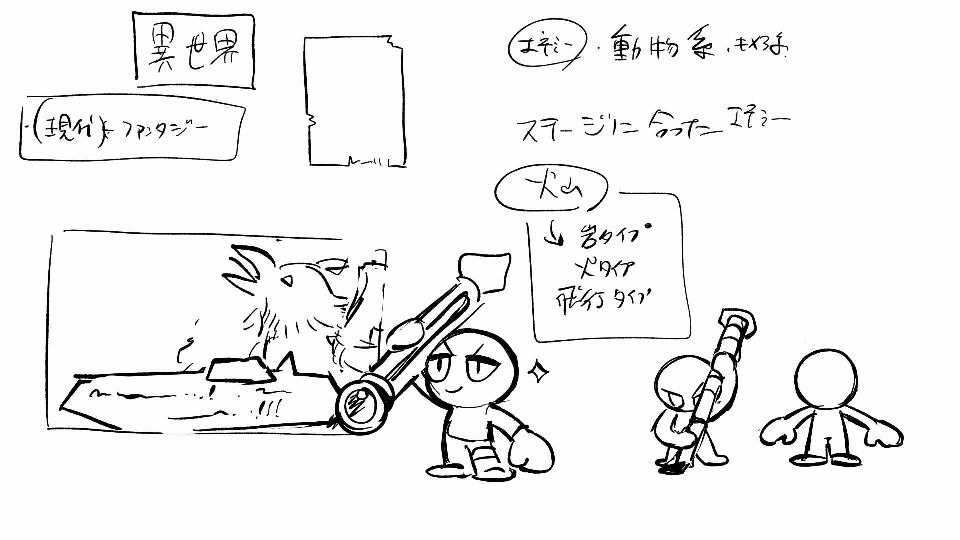 異世界
・(現代)とファンタジー
エネミー・動物系・モンスター
ステージに合ったエネミー
火山
↓岩タイプ
火タイプ
飛行タイプ